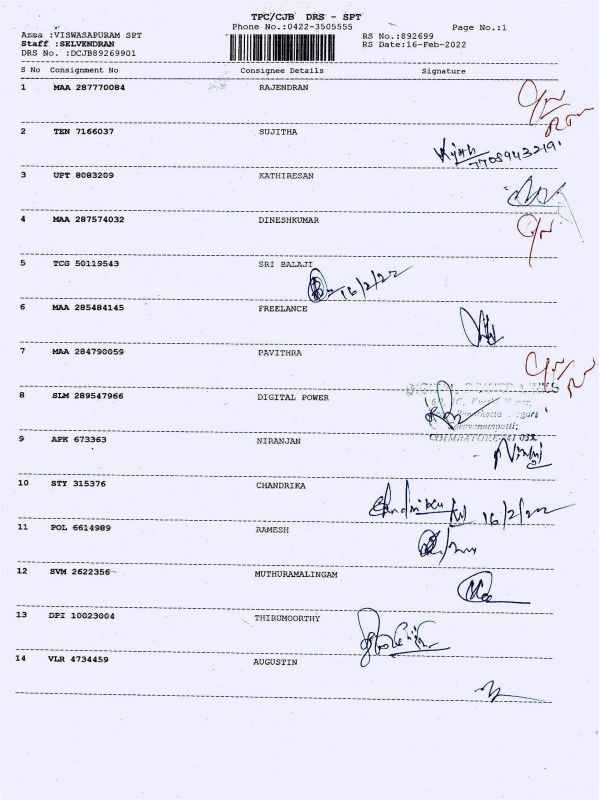 TPC/CJB DRS - SPT
Phone No.:0422-3505555 Page No.:1
Area :VISWASAPURAM SPT RS No.:892699
Staff :SELVENDRAN RS Date:16-Feb-2022
DRS No. :DCJB89269901
S No Consignment No Consignee Details Signature
1 MAA 287770084 RAJENDRAN
2 TEN 7166037 SUJITHA
7708943219
3 UPT 8083209 KATHIRESAN
4 MAA 287574032 DINESHKUMAR
5 TCG 50119543 SRI BALAJI
16/2/22
6 MAA 285484145 FREELANCE
7 MAA 284790059 PAVITHRA
8 SLM 289547966 DIGITAL POWER
9 APK 673363 NIRANJAN
10 STY 315376 CHANDRIKA
16/2/2022
11 POL 6614989 RAMESH
12 SVM 2622356 MUTHURAMALINGAM
13 DPI 10023004 THIRUMOORTHY
14 VLR 4734459 AUGUSTIN